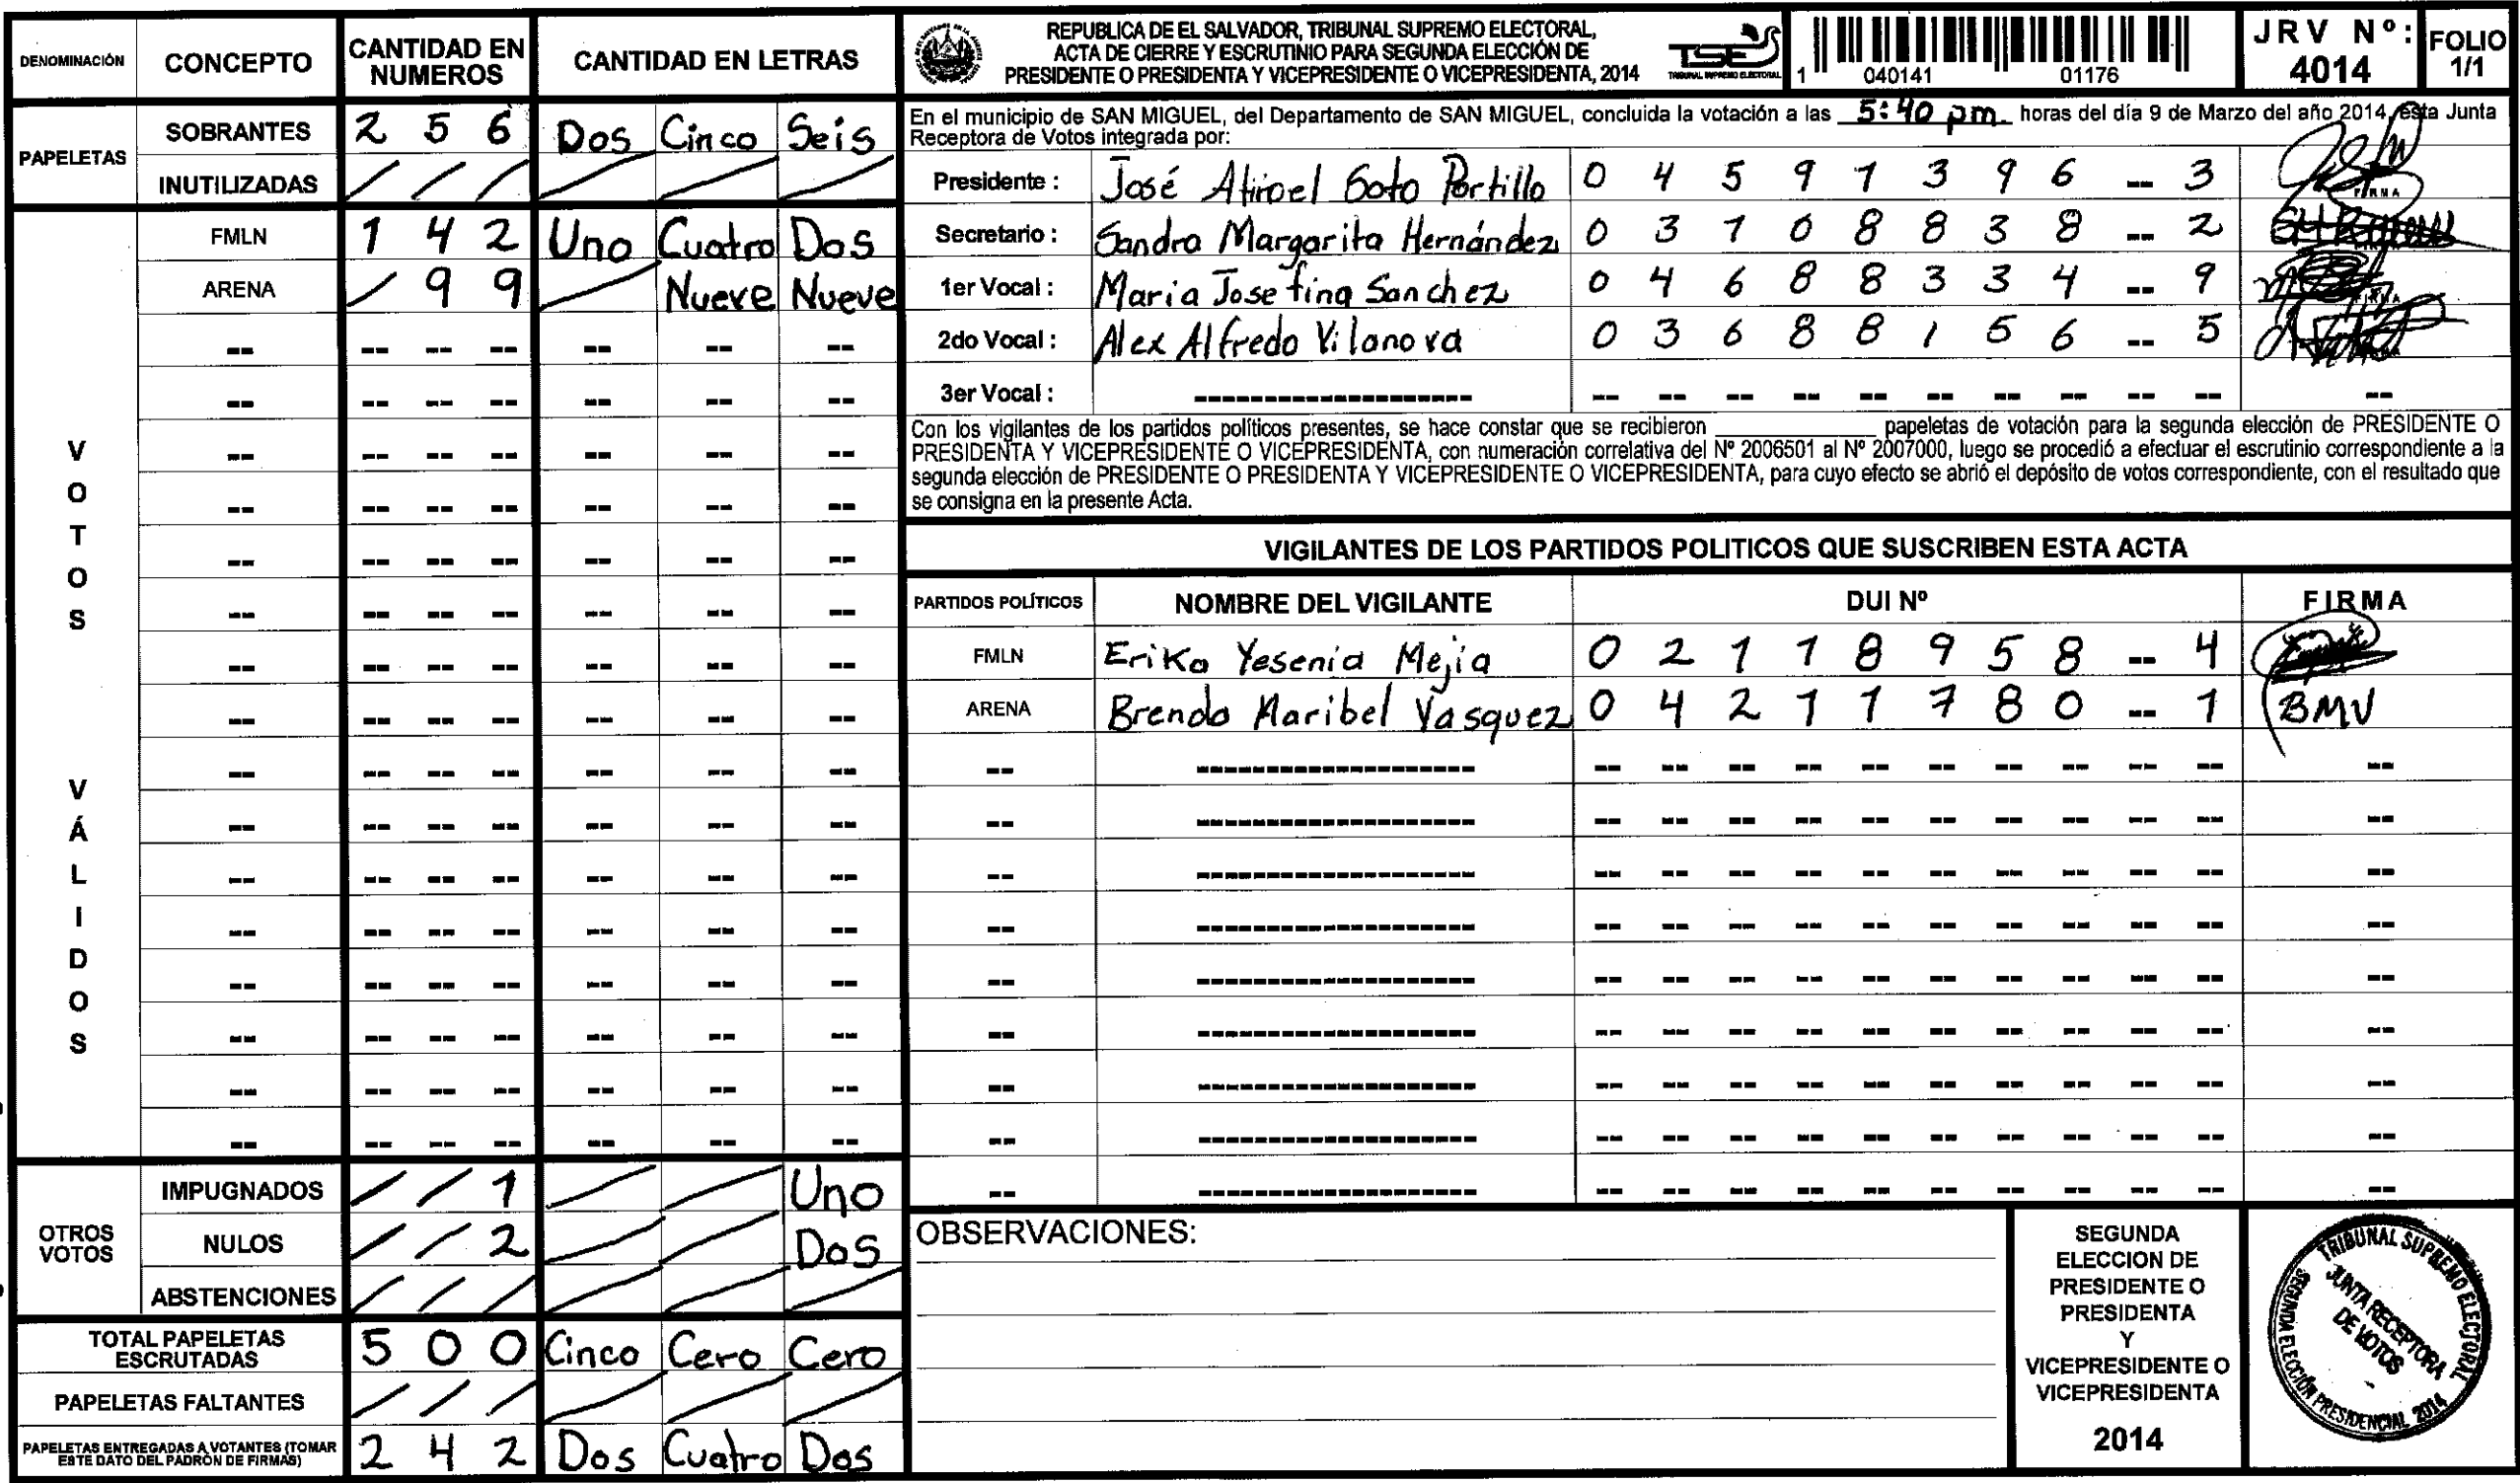 DENOMINACIÓN CONCEPTO CANTIDAD EN NUMEROS CANTIDAD EN LETRAS
PAPELETAS
SOBRANTES 2 5 6 Dos Cinco Seis
INUTILIZADAS / / / / / /
VOTOS VÁLIDOS
FMLN 1 4 2 Uno Cuatro Dos
ARENA / 9 9 / Nueve Nueve
OTROS VOTOS
IMPUGNADOS / / 1 / / Uno
NULOS / / 2 / / Dos
ABSTENCIONES / / / / / /
TOTAL PAPELETAS ESCRUTADAS 5 0 0 Cinco Cero Cero
PAPELETAS FALTANTES / / / / / /
PAPELETAS ENTREGADAS A VOTANTES (TOMAR ESTE DATO DEL PADRÓN DE FIRMAS) 2 4 2 Dos Cuatro Dos
REPUBLICA DE EL SALVADOR, TRIBUNAL SUPREMO ELECTORAL,
ACTA DE CIERRE Y ESCRUTINIO PARA SEGUNDA ELECCIÓN DE
PRESIDENTE O PRESIDENTA Y VICEPRESIDENTE O VICEPRESIDENTA, 2014
TSE
TRIBUNAL SUPREMO ELECTORAL
1 040141 01176
JRV Nº: 4014
FOLIO 1/1
En el municipio de SAN MIGUEL, del Departamento de SAN MIGUEL, concluida la votación a las 5:40 pm. horas del día 9 de Marzo del año 2014, esta Junta
Receptora de Votos integrada por:
Presidente : José Soto Portillo 0 4 5 9 1 3 9 6 -- 3 FIRMA
Secretario : Sandra Margarita Hernández 0 3 7 0 8 8 3 8 -- 2
1er Vocal : Maria Josefina Sanchez 0 4 6 8 8 3 3 4 -- 9 FIRMA
2do Vocal : Alex Alfredo Vilanova 0 3 6 8 8 1 5 6 -- 5
3er Vocal :
Con los vigilantes de los partidos políticos presentes, se hace constar que se recibieron ________ papeletas de votación para la segunda elección de PRESIDENTE O
PRESIDENTA Y VICEPRESIDENTE O VICEPRESIDENTA, con numeración correlativa del Nº 2006501 al Nº 2007000, luego se procedió a efectuar el escrutinio correspondiente a la
segunda elección de PRESIDENTE O PRESIDENTA Y VICEPRESIDENTE O VICEPRESIDENTA, para cuyo efecto se abrió el depósito de votos correspondiente, con el resultado que
se consigna en la presente Acta.
VIGILANTES DE LOS PARTIDOS POLITICOS QUE SUSCRIBEN ESTA ACTA
PARTIDOS POLÍTICOS NOMBRE DEL VIGILANTE DUI Nº FIRMA
FMLN Erika Yesenia Mejia 0 2 1 1 8 9 5 8 -- 4
ARENA Brenda Maribel Vasquez 0 4 2 1 1 7 8 0 -- 1 BMV
OBSERVACIONES:
SEGUNDA
ELECCION DE
PRESIDENTE O
PRESIDENTA
Y
VICEPRESIDENTE O
VICEPRESIDENTA
2014
TRIBUNAL SUPREMO ELECTORAL
JUNTA RECEPTORA
DE VOTOS
SEGUNDA ELECCIÓN PRESIDENCIAL 2014